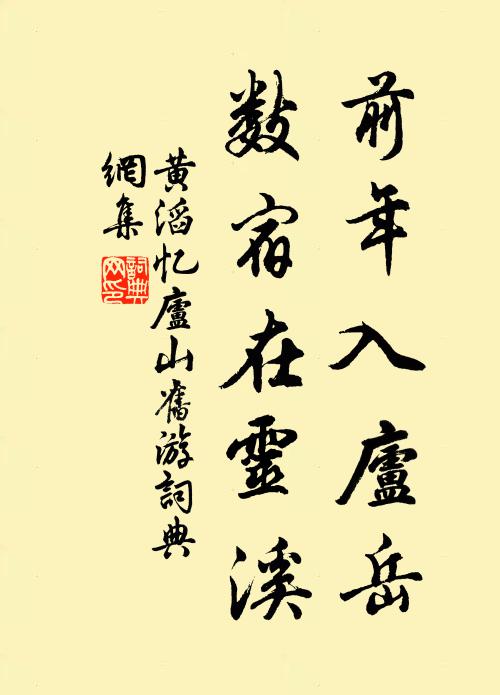 前年入廬岳
数宿在靈溪
黄滔忆廬山舊游詞典
網集
詞典網印